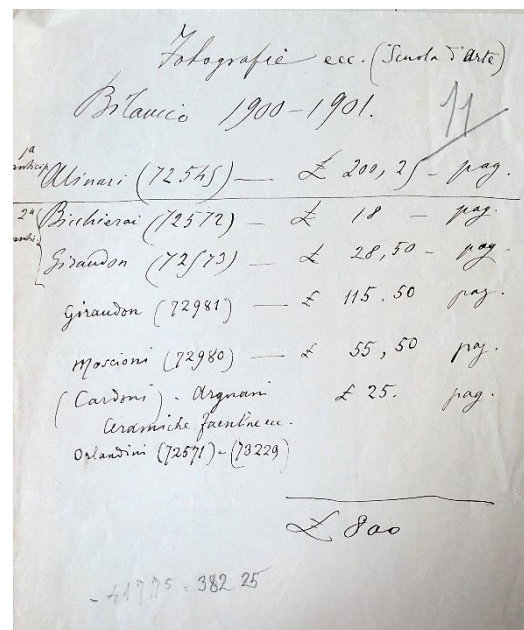 Fotografie ecc. (Scuola d'Arte)
Bilancio 1900-1901.
11
1ª anticip. Alinari (72545) — £ 200,25 - pag.
2ª antic. Bicchierai (72572) — £ 18 — pag.
Giraudon (72573) — £ 28,50 - pag.
Giraudon (72981) — £ 115.50 pag.
Moscioni (72980) — £ 55,50 pag.
(Cardoni). Argnani £ 25. pag.
Ceramiche faentine ecc.
Orlandini (72571) - (73229)
£ 800
- 417 75 = 382 25